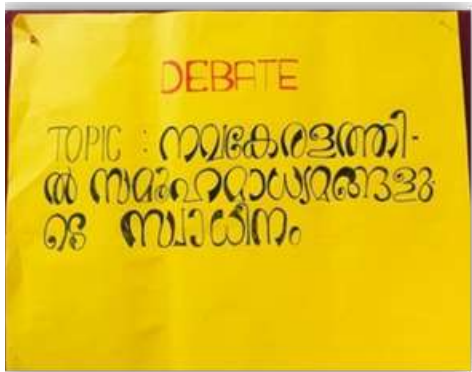 DEBATE
TOPIC : നവകേരളത്തി-
ൽ സമൂഹമാധ്യമങ്ങളു
ടെ സ്വാധീനം